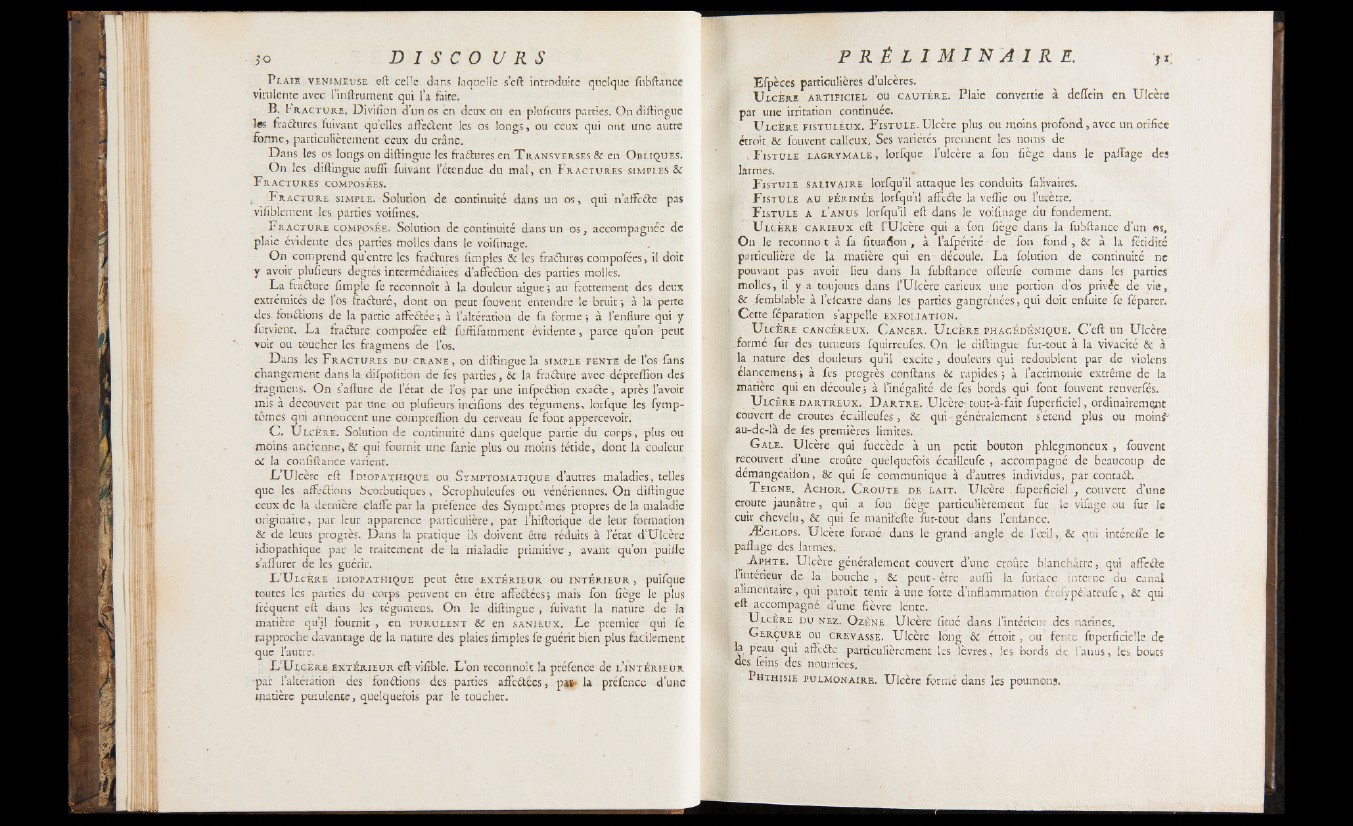 30 DISCOURS
PLAIE VENIMEUSE eſt celle dans laquelle s'eſt introduite quelque ſubſtance
virulente avec l'inſtrument qui l'a faite.
B. FRACTURE, Diviſion d'un os en deux ou en pluſieurs parties. On diſtingue
les fractures ſuivant qu'elles affectent les os longs, ou ceux qui ont une autre
forme, particulièrement ceux du crâne.
Dans les os longs on diſtingue les fractures en TRANSVERSES & en OBLIQUES.
On les diſtingue auſſi ſuivant l'étendue du mal, en FRACTURES SIMPLES &
FRACTURES COMPOSÉES.
FRACTURE SIMPLE. Solution de continuité dans un os, qui n'affecte pas
viſiblement les parties voiſines.
FRACTURE COMPOSÉE. Solution de continuité dans un os, accompagnée de
plaie évidente des parties molles dans le voiſinage.
On comprend qu'entre les fractures ſimples & les fractures compoſées, il doit
y avoir pluſieurs degrés intermédiaires d'affection des parties molles.
La fracture ſimple ſe reconnoît à la douleur aigue; au frottement des deux
extrémités de l'os fracturé, dont on peut ſouvent entendre le bruit; à la perte
des fonctions de la partie affectée; à l'altération de ſa forme; à l'enflure qui y
ſurvient. La fracture compoſée eſt ſuffiſamment évidente, parce qu'on peut
voir ou toucher les fragmens de l'os.
Dans les FRACTURES DU CRANE, on diſtingue la SIMPLE FENTE de l'os ſans
changement dans la diſpoſition de ſes parties, & la fracture avec dépreſſion des
fragmens. On s'aſſure de l'état de l'os par une inſpection exacte, après l'avoir
mis à découvert par une ou pluſieurs inciſions des tégumens, lorſque les ſymp-
tômes qui annoncent une compreſſion du cerveau ſe font appercevoir.
C. ULCÈRE. Solution de continuité dans quelque partie du corps, plus ou
moins ancienne, & qui fournit une ſanie plus ou moins fétide, dont la couleur
& la conſiſtance varient.
L'Ulcère eſt IDIOPATHIQUE ou SYMPTOMATIQUE d'autres maladies, telles
que les affections Scorbutiques, Scrophuleuſes ou vénériennes. On diſtingue
ceux de la dernière claſſe par la préſence des Symptômes propres de la maladie
originaire, par leur apparence particulière, par l'hiſtorique de leur formation
& de leurs progrès. Dans la pratique ils doivent être réduits à l'état d'Ulcère
idiopathique par le traitement de la maladie primitive, avant qu'on puiſſe
s'aſſurer de les guérir.
L'ULCÈRE IDIOPATHIQUE peut être EXTÉRIEUR ou INTÉRIEUR, puiſque
toutes les parties du corps peuvent en être affectées; mais ſon ſiège le plus
fréquent eſt dans les tégumens. On le diſtingue, ſuivant la nature de la
matière qu'il fournit, en PURULENT & en SANIEUX. Le premier qui ſe
rapproche davantage de la nature des plaies ſimples ſe guérit bien plus facilement
que l'autre.
L'ULCÈRE EXTÉRIEUR eſt viſible. L'on reconnoît la préſence de L'INTÉRIEUR
par l'altération des fonctions des parties affectées, par la préſence d'une
matière purulente, quelquefois par le toucher.
PRÉLIMINAIRE. 31
Eſpèces particulières d'ulcères.
ULCÈRE ARTIFICIEL ou CAUTÈRE. Plaie convertie à deſſein en Ulcère
par une irritation continuée.
ULCÈRE FISTULEUX. FISTULE. Ulcère plus ou moins profond, avec un orifice
étroit & ſouvent calleux. Ses variétés prennent les noms de
FISTULE LAGRYMALE, lorſque l'ulcère a ſon ſiège dans le paſſage des
larmes.
FISTULE SALIVAIRE lorſqu'il attaque les conduits ſalivaires.
FISTULE AU PÉRINÉE lorſqu'il affecte la veſſie ou l'urètre.
FISTULE A L'ANUS lorſqu'il eſt dans le voiſinage du fondement.
ULCÈRE CARIEUX eſt l'Ulcère qui a ſon ſiège dans la ſubſtance d'un os,
On le reconnoît à ſa ſituation, à l'aſpérité de ſon fond, & à la fétidité
particulière de la matière qui en découle. La ſolution de continuité ne
pouvant pas avoir lieu dans la ſubſtance oſſeuſe comme dans les parties
molles, il y a toujours dans l'Ulcère carieux une portion d'os privée de vie,
& ſemblable à l'eſcarre dans les parties gangrénées, qui doit enſuite ſe ſéparer.
Cette ſéparation s'appelle EXFOLIATION.
ULCÈRE CANCÉREUX. CANCER. ULCÈRE PHAGÉDÉNIQUE. C'eſt un Ulcère
formé ſur des tumeurs ſquirreuſes. On le diſtingue ſur-tout à la vivacité & à
la nature des douleurs qu'il excite, douleurs qui redoublent par de violens
élancemens; à ſes progrès conſtans & rapides; à l'acrimonie extrême de la
matière qui en découle; à l'inégalité de ſes bords qui ſont ſouvent renverſés.
ULCÈRE DARTREUX. DARTRE. Ulcère tout-à-fait ſuperficiel, ordinairement
couvert de croutes écailleuſes, & qui généralement s'étend plus ou moins
au-de-là de ſes premières limites.
GALE. Ulcère qui ſuccède à un petit bouton phlegmoneux, ſouvent
recouvert d'une croûte quelquefois écailleuſe, accompagné de beaucoup de
démangeaiſon, & qui ſe communique à d'autres individus, par contact.
TEIGNE. ACHOR. CROUTE DE LAIT. Ulcère ſuperficiel, couvert d'une
croute jaunâtre, qui a ſon ſiège particulièrement ſur le viſage ou ſur le
cuir chevelu, & qui ſe manifeſte ſur-tout dans l'enfance.
ÆGILOPS. Ulcère formé dans le grand angle de l'œil, & qui intéreſſe le
paſſage des larmes.
APHTE. Ulcère généralement couvert d'une croûte blanchâtre, qui affecte
l'intérieur de la bouche, & peut-être auſſi la ſurface interne du canal
alimentaire, qui paroît tenir à une ſorte d'inflammation éréſypélateuſe, & qui
eſt accompagné d'une fièvre lente.
ULCÈRE DU NEZ. OZÈNE Ulcère ſitué dans l'intérieur des narines.
GERÇURE ou CREVASSE. Ulcère long & étroit, ou fente ſuperficielle de
la peau qui affecte particulièrement les lèvres, les bords de l'anus, les bouts
des ſeins des nourrices.
PHTHISIE PULMONAIRE. Ulcère formé dans les poumons.